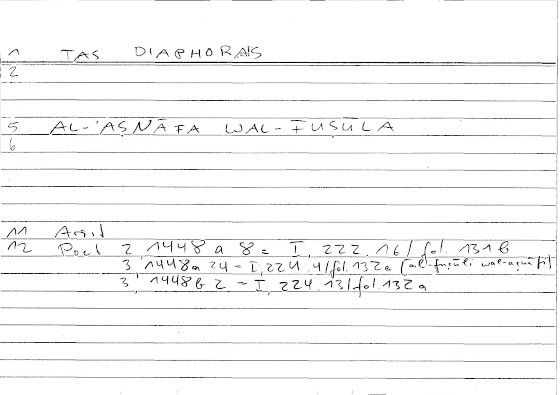 1 TAS DIAPHORAIS
2
5 AL-'AṢNĀFA WAL-FUṢŪLA
6
11 Arist
12 Poet 2, 1448 a 8 = I, 222.16/fol. 131 b
3, 1448a 24 = I, 224.4/fol. 132a (al-fuṣūli wal-aṣnāfi)
3, 1448b 2 = I, 224 13/fol. 132 a